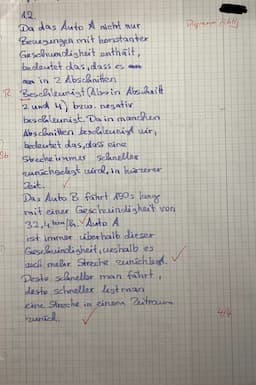 1.2.
Diagramm richtig
Da das Auto A nicht nur
Bewegungen mit konstanter
Geschwindigkeit enthält,
bedeutet das, dass es
in 2 Abschnitten
R Beschleunigt (Also in Abschnitt
2 und 4) bzw. negativ
beschleunigt. Da in manchen
Abschnitten beschleunigt wir,
Sb bedeutet das, dass eine
Strecke immer schneller
zurückgelegt wird, in kürzerer
Zeit.
Das Auto B fährt 190s lang
mit einer Geschwindigkeit von
32,4 km/h. Auto A
ist immer überhalb dieser
Geschwindigkeit, weshalb es
auch mehr Strecke zurücklegt.
Desto schneller man fährt,
desto schneller legt man
eine Strecke in einem Zeitraum
zurück.
4/4